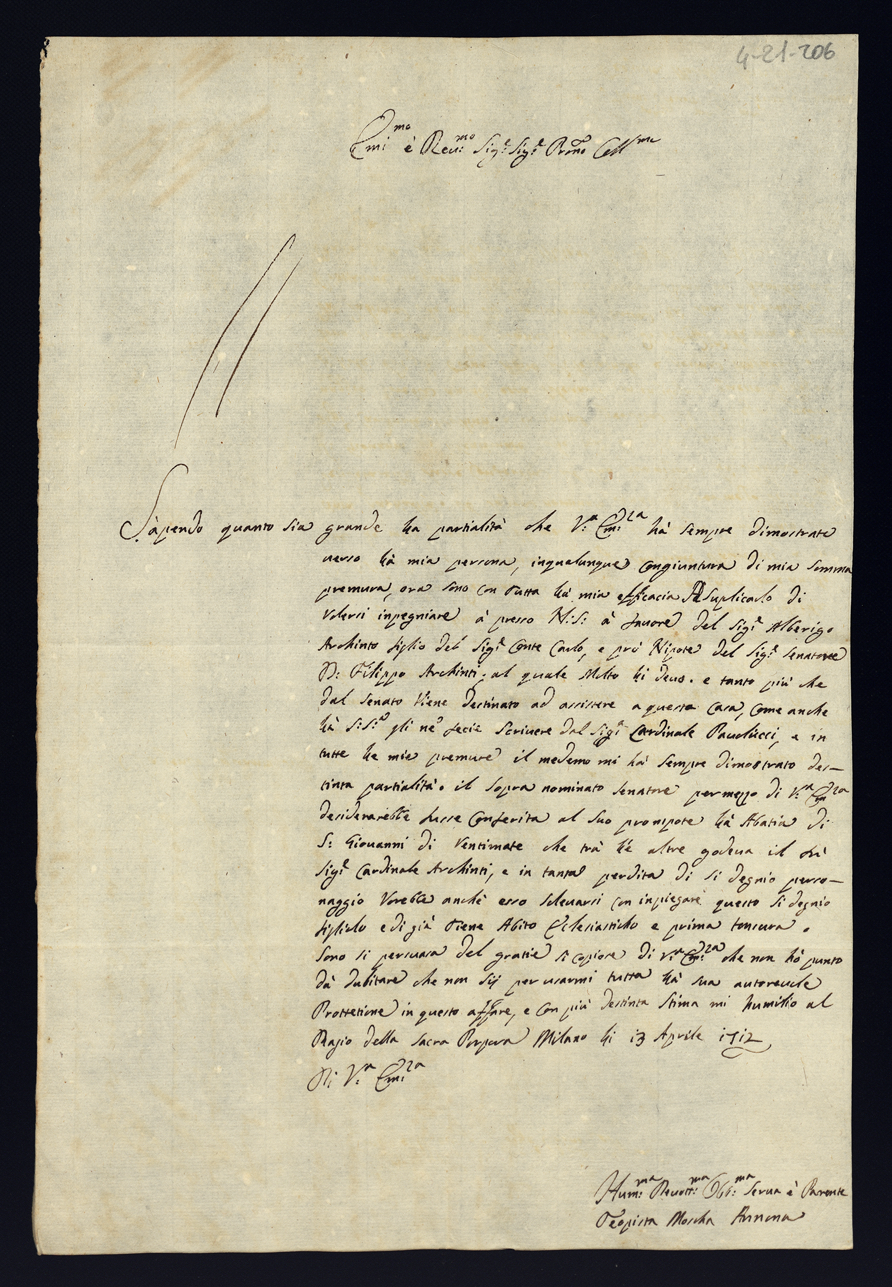 4-21-206
Emi.mo è Reu:mo Sig:r Sig:r Prōne Coll.mo
Sàpendo quanto sia grande ha partialità che V:ra Em:za hà sempre dimostrate
uerso hà mia persona, inqualunque Congiuntura di mia somma
premura, ora sono con tutta hà mia efficacia Suplicarlo di
Volersi inpegniare à presso N:S: à fauore del Sig:r Alberigo
Archinto figlio del Sig:r Conte Carlo, e prò Nipote del Sig:r Senatore
D: Filippo Archinti; al quale Molto hi deuo. e tanto più che
dal Senato Viene destinato ad assistere a questa Casa, Come anche
hà S:S:tà gli nè fecie Scriuere dal Sig:r Cardinale Paulucci, e in
tutte he mie premure il medemo mi hà sempre dimostrato des-
tinta partialità. il sopra nominato Senatore permezzo di V:ra Em:za
desiderarebbe fusse Conferita al Suo pronipote hà Abatia di
S: Giouanni di Ventimate che trà hè altre godeua il fù
Sig:r Cardinale Archinti, e in tanta perdita di si degnio perso-
naggio Vorebbe anchè esso Soleuarsi con inpiegare questo si degnio
figliolo e di già tiene Abito Eclesiasticho e prima tonsura.
Sono si persuasa del gratie si copiose di V:ra Em:za che non hò punto
dà dubitare che non sij per usarmi tutta hà sua autoreuole
Prottetione in questo affare, e con più destinta Stima mi humilio al
Bagio della Sacra Porpora Milano hi 13 Aprile 1712
Di V:ra Em:za
Hum:ma Deuott:ma Obb:ma Serua è Parente
Teopista Annona